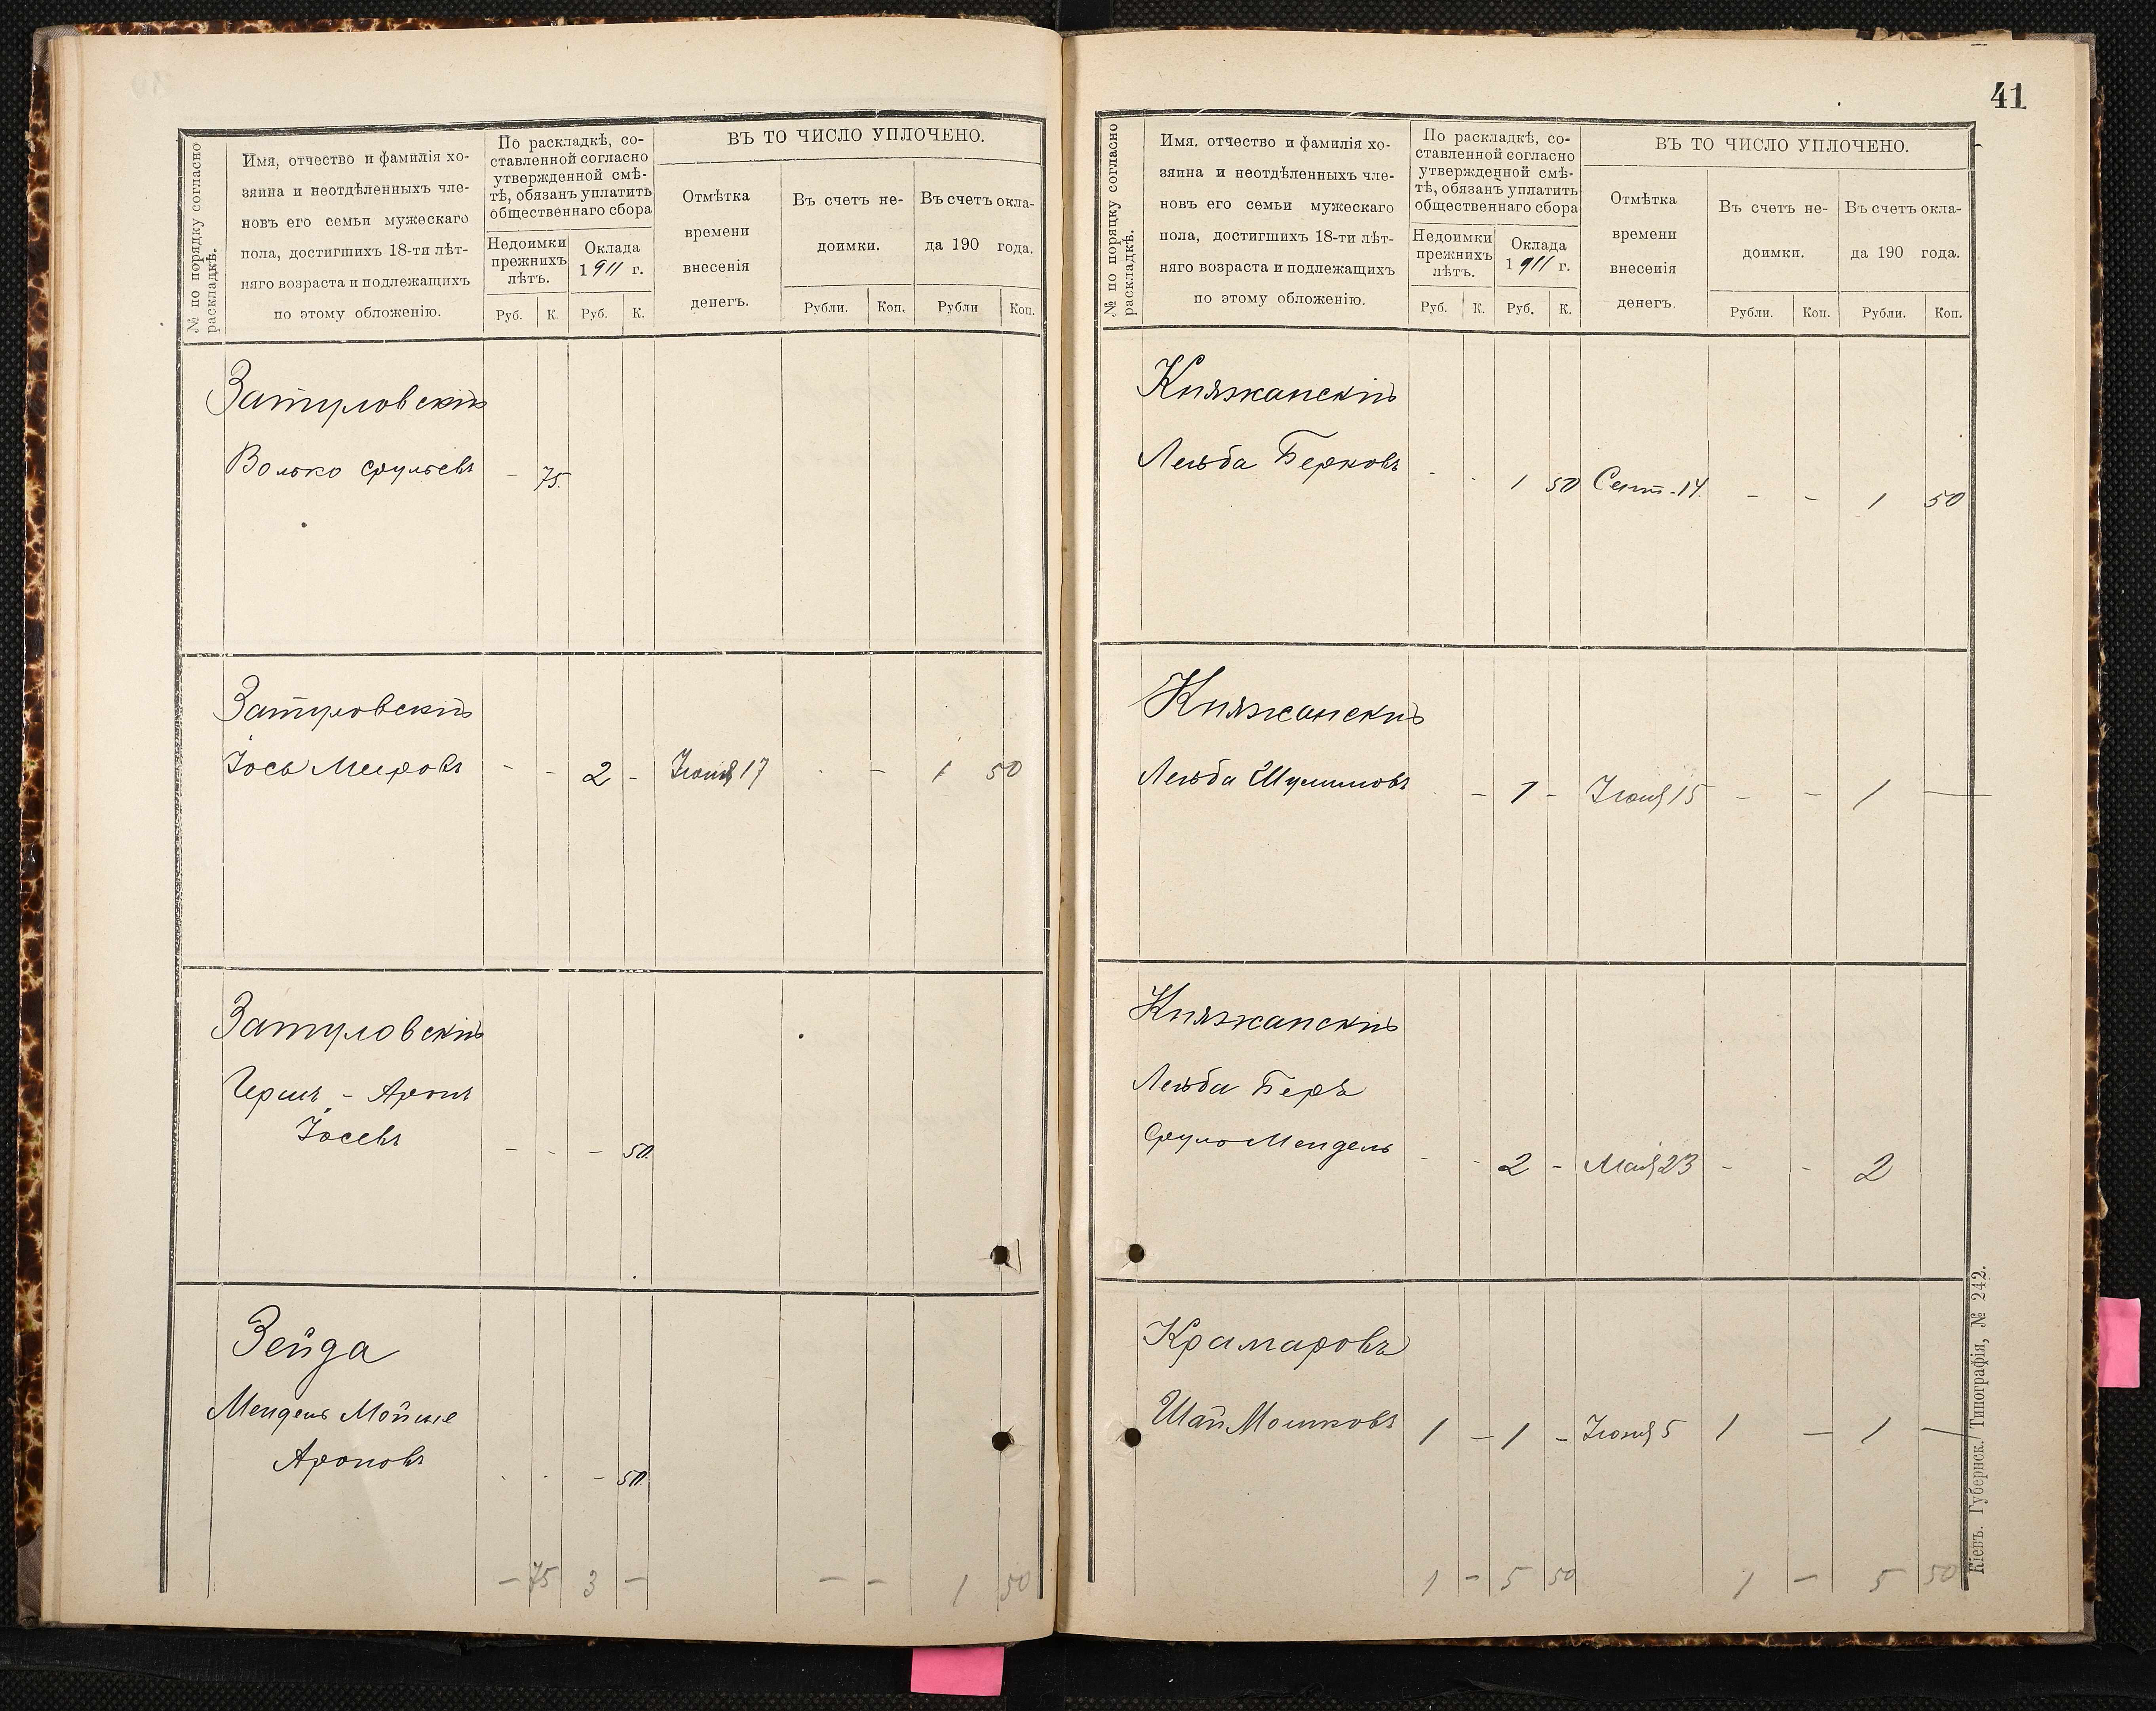 № по порядку согласно
раскладкѣ.
Имя, отчество и фамилія хо-
зяина и неотдѣленныхъ чле-
новъ его семьи мужескаго
пола, достигшихъ 18-ти лѣт-
няго возраста и подлежащихъ
по этому обложенію.
По раскладкѣ, со-
ставленной согласно
утвержденной смѣ-
тѣ, обязанъ уплатить
общественнаго сбора
Недоимки
прежнихъ
лѣтъ.
Оклада
1911 г.
Руб. К. Руб. К.
ВЪ ТО ЧИСЛО УПЛОЧЕНО.
Отмѣтка
времени
внесенія
денегъ.
Въ счетъ не-
доимки.
Рубли. Коп.
Въ счетъ окла-
да 190 года.
Рубли Коп.
Затуловскій
Волько Срульевъ - 75.
Затуловскій
Іось Меировъ - - 2 - Іюня 17 - - 1 50
Затуловскій
Гершъ - Аронъ
Іосевъ - - - 50.
Зейда
Мендель Мойше
Ароновъ - - - 50.
- 75 3 - - - 1 50
41
№ по поряцку согласно
раскладкѣ.
Имя. отчество и фамилія хо-
зяина и неотдѣленныхъ чле-
новъ его семьи мужескаго
пола, достигшихъ 18-ти лѣт-
няго возраста и подлежащихъ
по этому обложенію.
По раскладкѣ, со-
ставленной согласно
утвержденной смѣ-
тѣ, обязанъ уплатить
общественнаго сбора
Недоимки
прежнихъ
лѣтъ.
Оклада
1911 г.
Руб. К. Руб. К.
ВЪ ТО ЧИСЛО УПЛОЧЕНО.
Отмѣтка
времени
внесенія
денегъ.
Въ счетъ не-
доимки.
Рубли. Коп.
Въ счетъ окла-
да 190 года.
Рубли. Коп.
Княжанскій
Лейба Берковъ - - 1 50 Сент. 14. - - 1 50
Княжанскій
Лейба Шулимовъ - 1 - Іюня 15 - - 1 -
Княжанскій
Лейба Беръ
Сруло Мендель - - 2 - Мая 23 - - 2
Крамаровъ
Шая Мошковъ 1 - 1 - Іюня 5 1 - 1 -
1 - 5 50 1 - 5 50
Кіевъ. Губернск. Типографія, № 242.